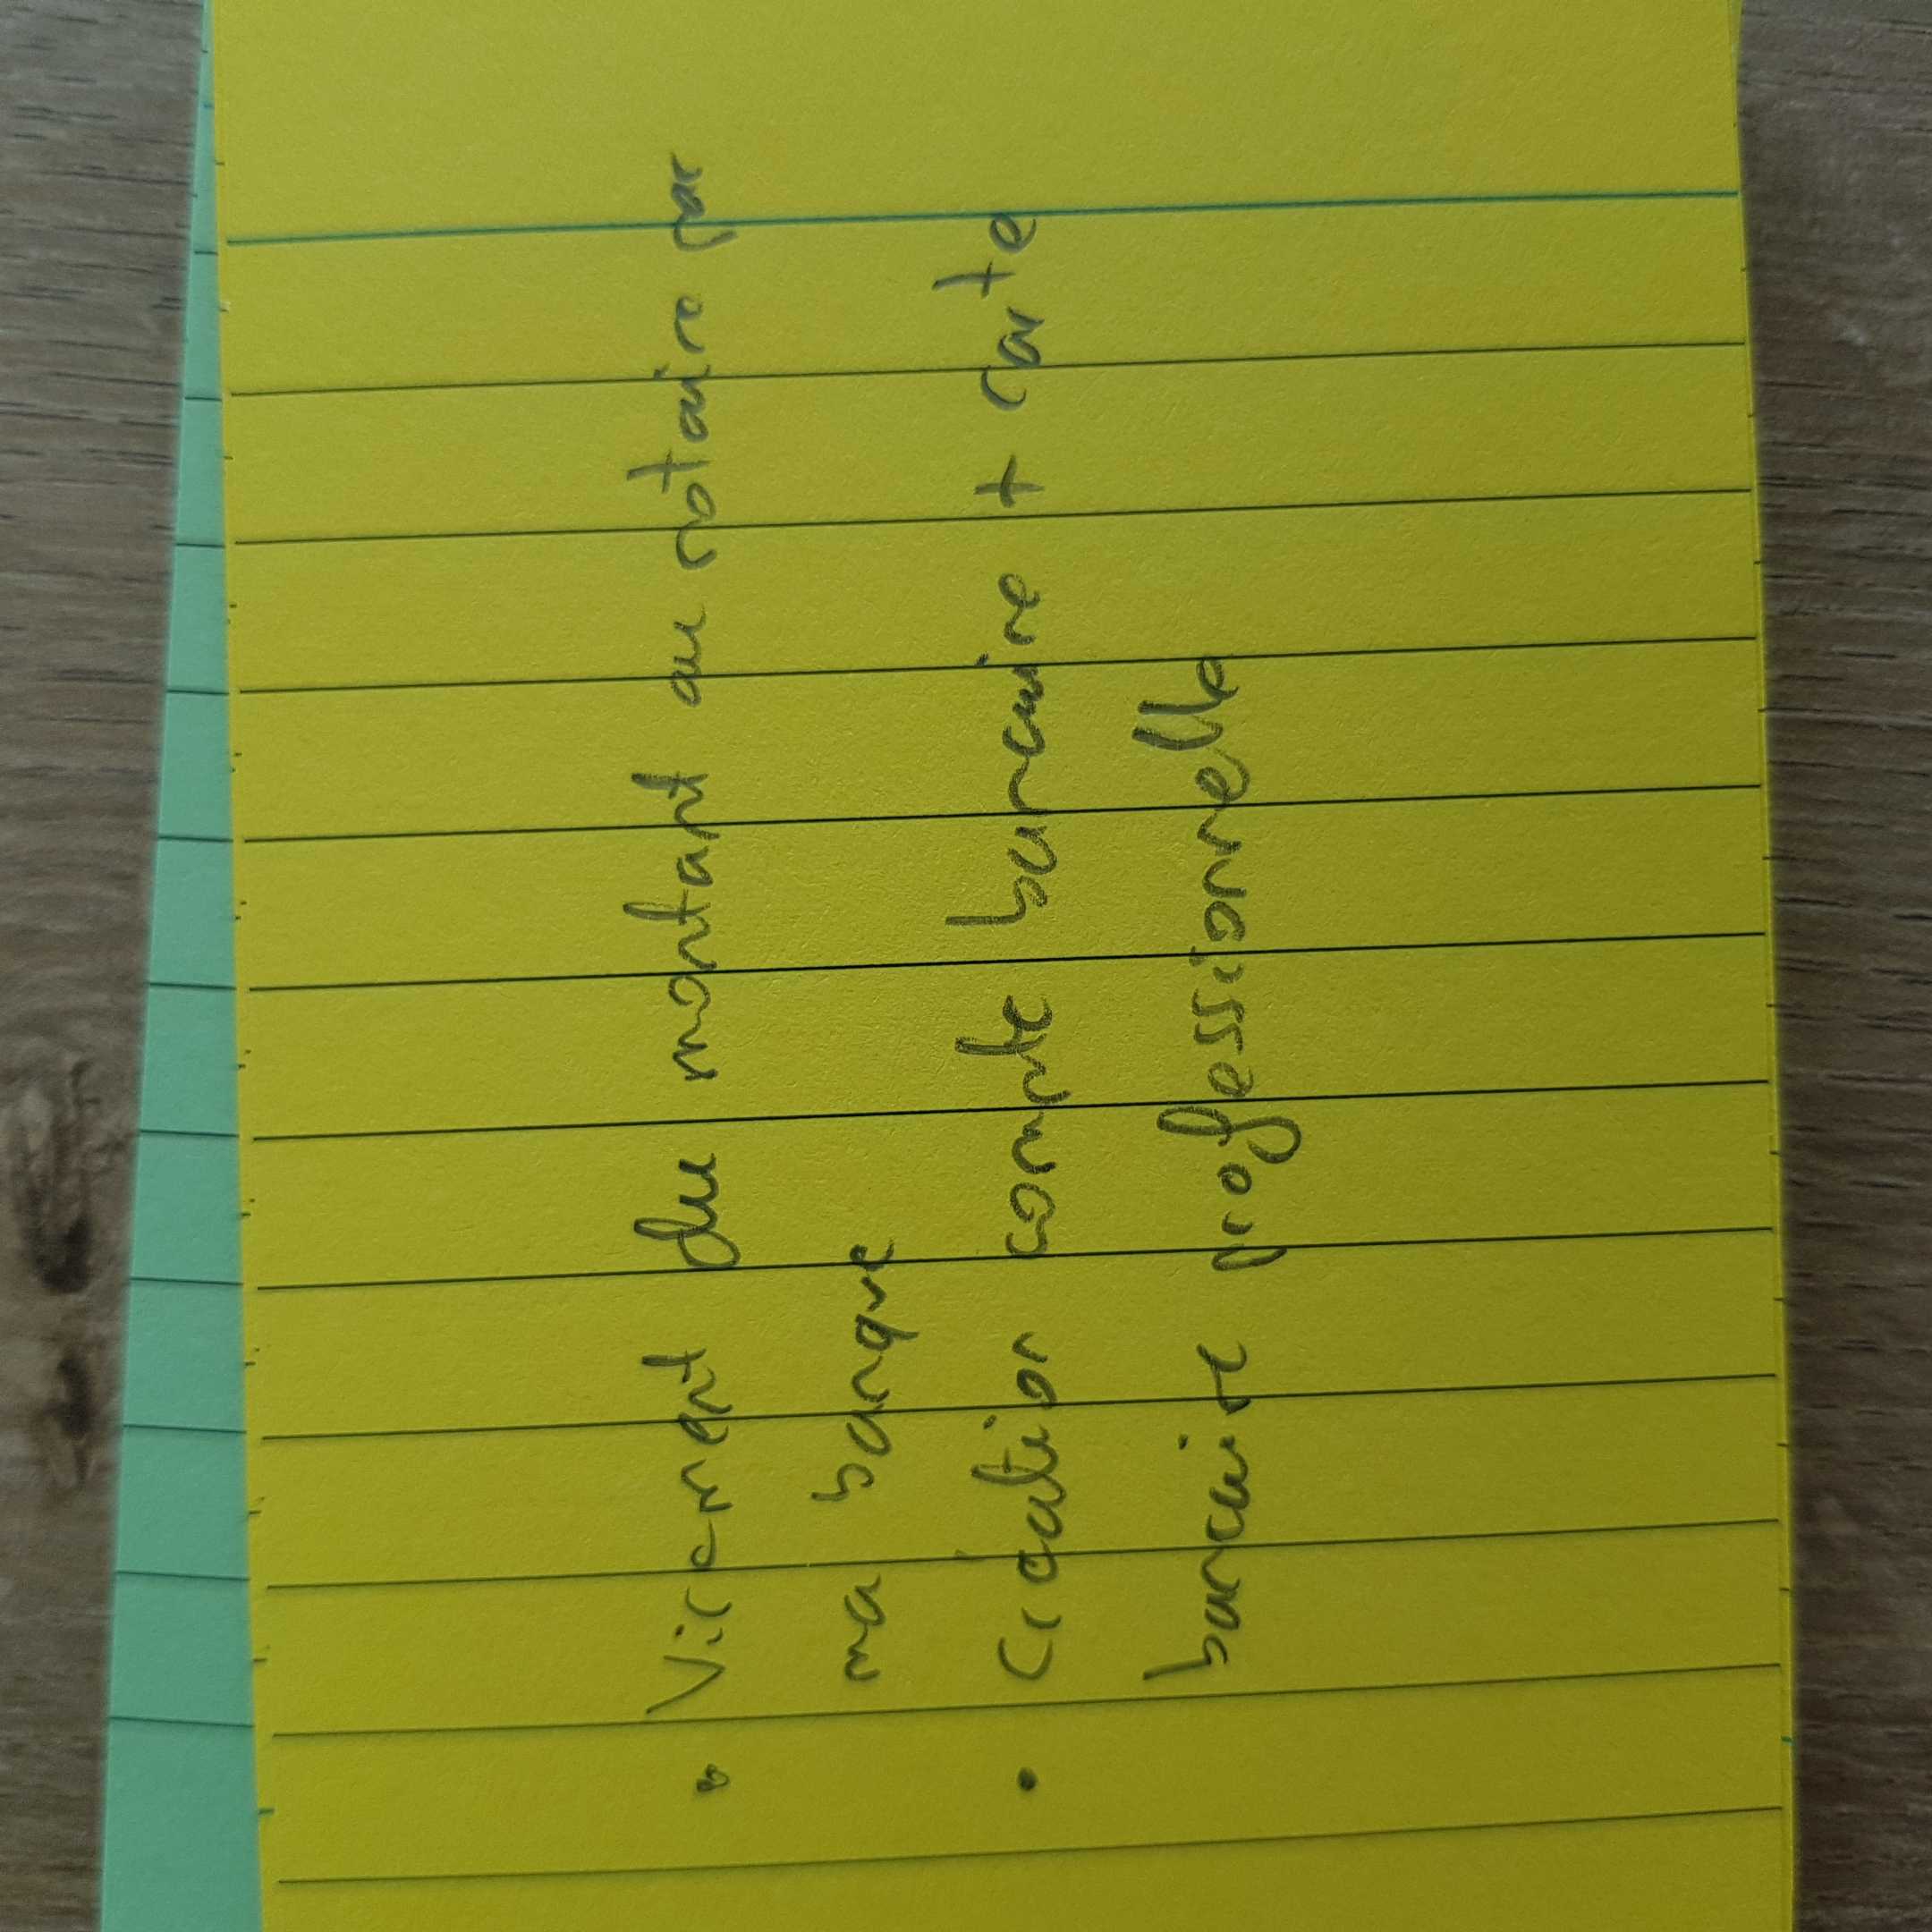 • Virement du montant au notaire par
ma banque
• Création compte bancaire + carte
bancaire professionnelle